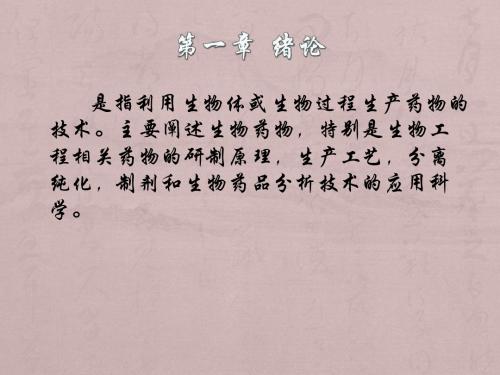 第一章 绪论
是指利用生物体或生物过程生产药物的
技术。主要阐述生物药物，特别是生物工
程相关药物的研制原理，生产工艺，分离
纯化，制剂和生物药品分析技术的应用科
学。